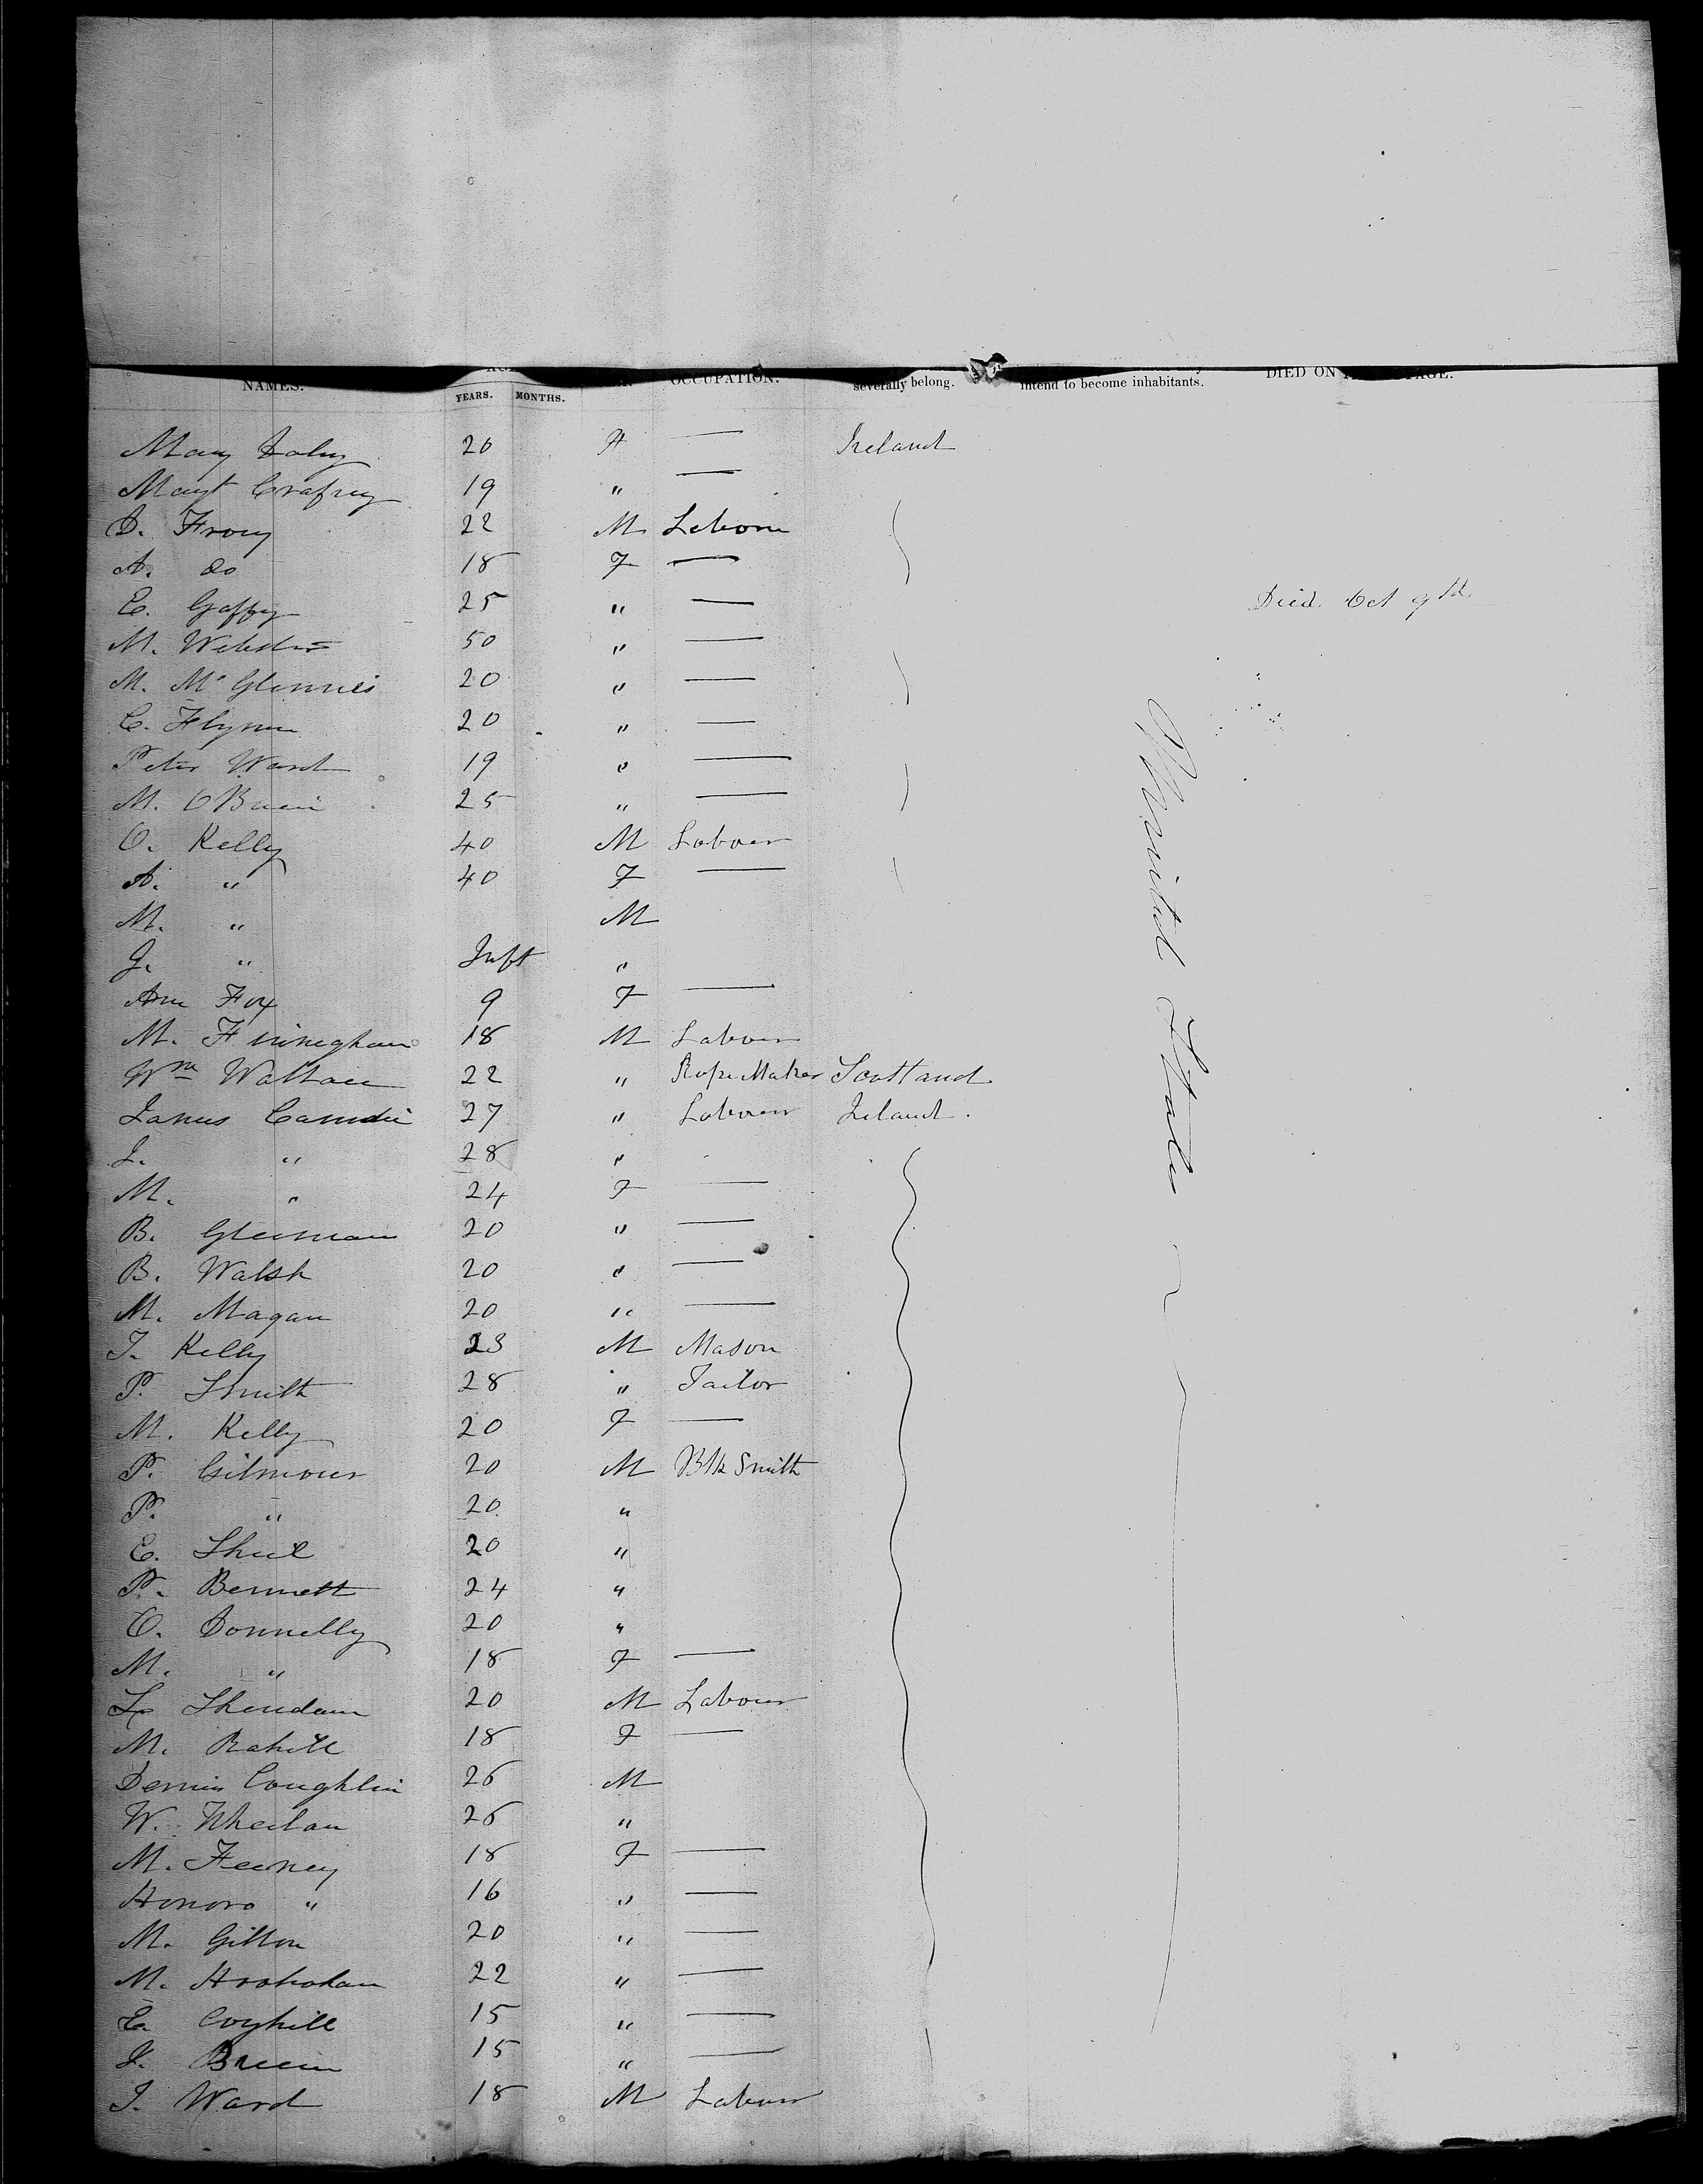 NAMES. YEARS. MONTHS. OCCUPATION. severally belong. intend to become inhabitants. DIED ON
Mary 20 F — Ireland
Mayt 19 " —
D. 22 M
A. do 18 F —
E. Gaffey 25 " — Died Oct 9th
M. Webster 50 " —
M. McGlinnes 20 " —
C. Flynn 20 " —
Peter Ward 19 " —
M. O'Brien 25 " —
O. Kelly 40 M Labour
A. " 40 F —
M. " M
J. " Inft "
Ann Fox 9 F —
M. Finineghan 18 M Labour
Wm Wallace 22 " Rope Maker Scotland
James 27 " Labour Ireland.
J. " 28 "
M. " 24 F —
B. 20 " —
B. Walsh 20 " —
M. Magan 20 " —
T. Kelly 23 M Mason
P. Smith 28 " Tailor
M. Kelly 20 F —
P. Gilmour 20 M Blk Smith
P. " 20 "
E. 20 "
P. Bennett 24 "
O. Donnelly 20 "
M. " 18 F —
Sheridan 20 M Labour
M. Rahill 18 F —
Dennis Coughlin 26 M
W. Whelan 26 "
M. Feeney 18 F —
Honora " 16 " —
M. 20 " —
M. 22 " —
Coyhill 15 " —
J. 15 " —
J. Ward 18 M Labour
United States